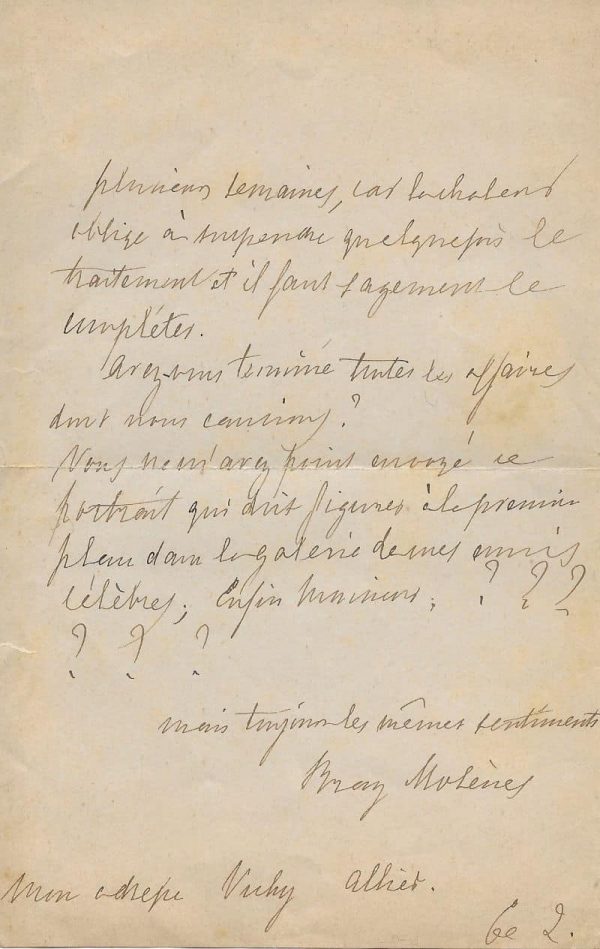 plusieurs semaines, car la chaleur
oblige à suspendre quelquefois le
traitement et il faut sagement le
compléter.
Avez-vous terminé toutes les affaires
dont nous causions?
Vous ne m'avez point envoyé ce
portrait qui doit figurer à le premier
plan dans la galerie de mes amis
célèbres; Enfin ? ? ?
? ? ?
mais toujours les mêmes sentiments
Bray Molènes
Mon adresse Vichy Allier.